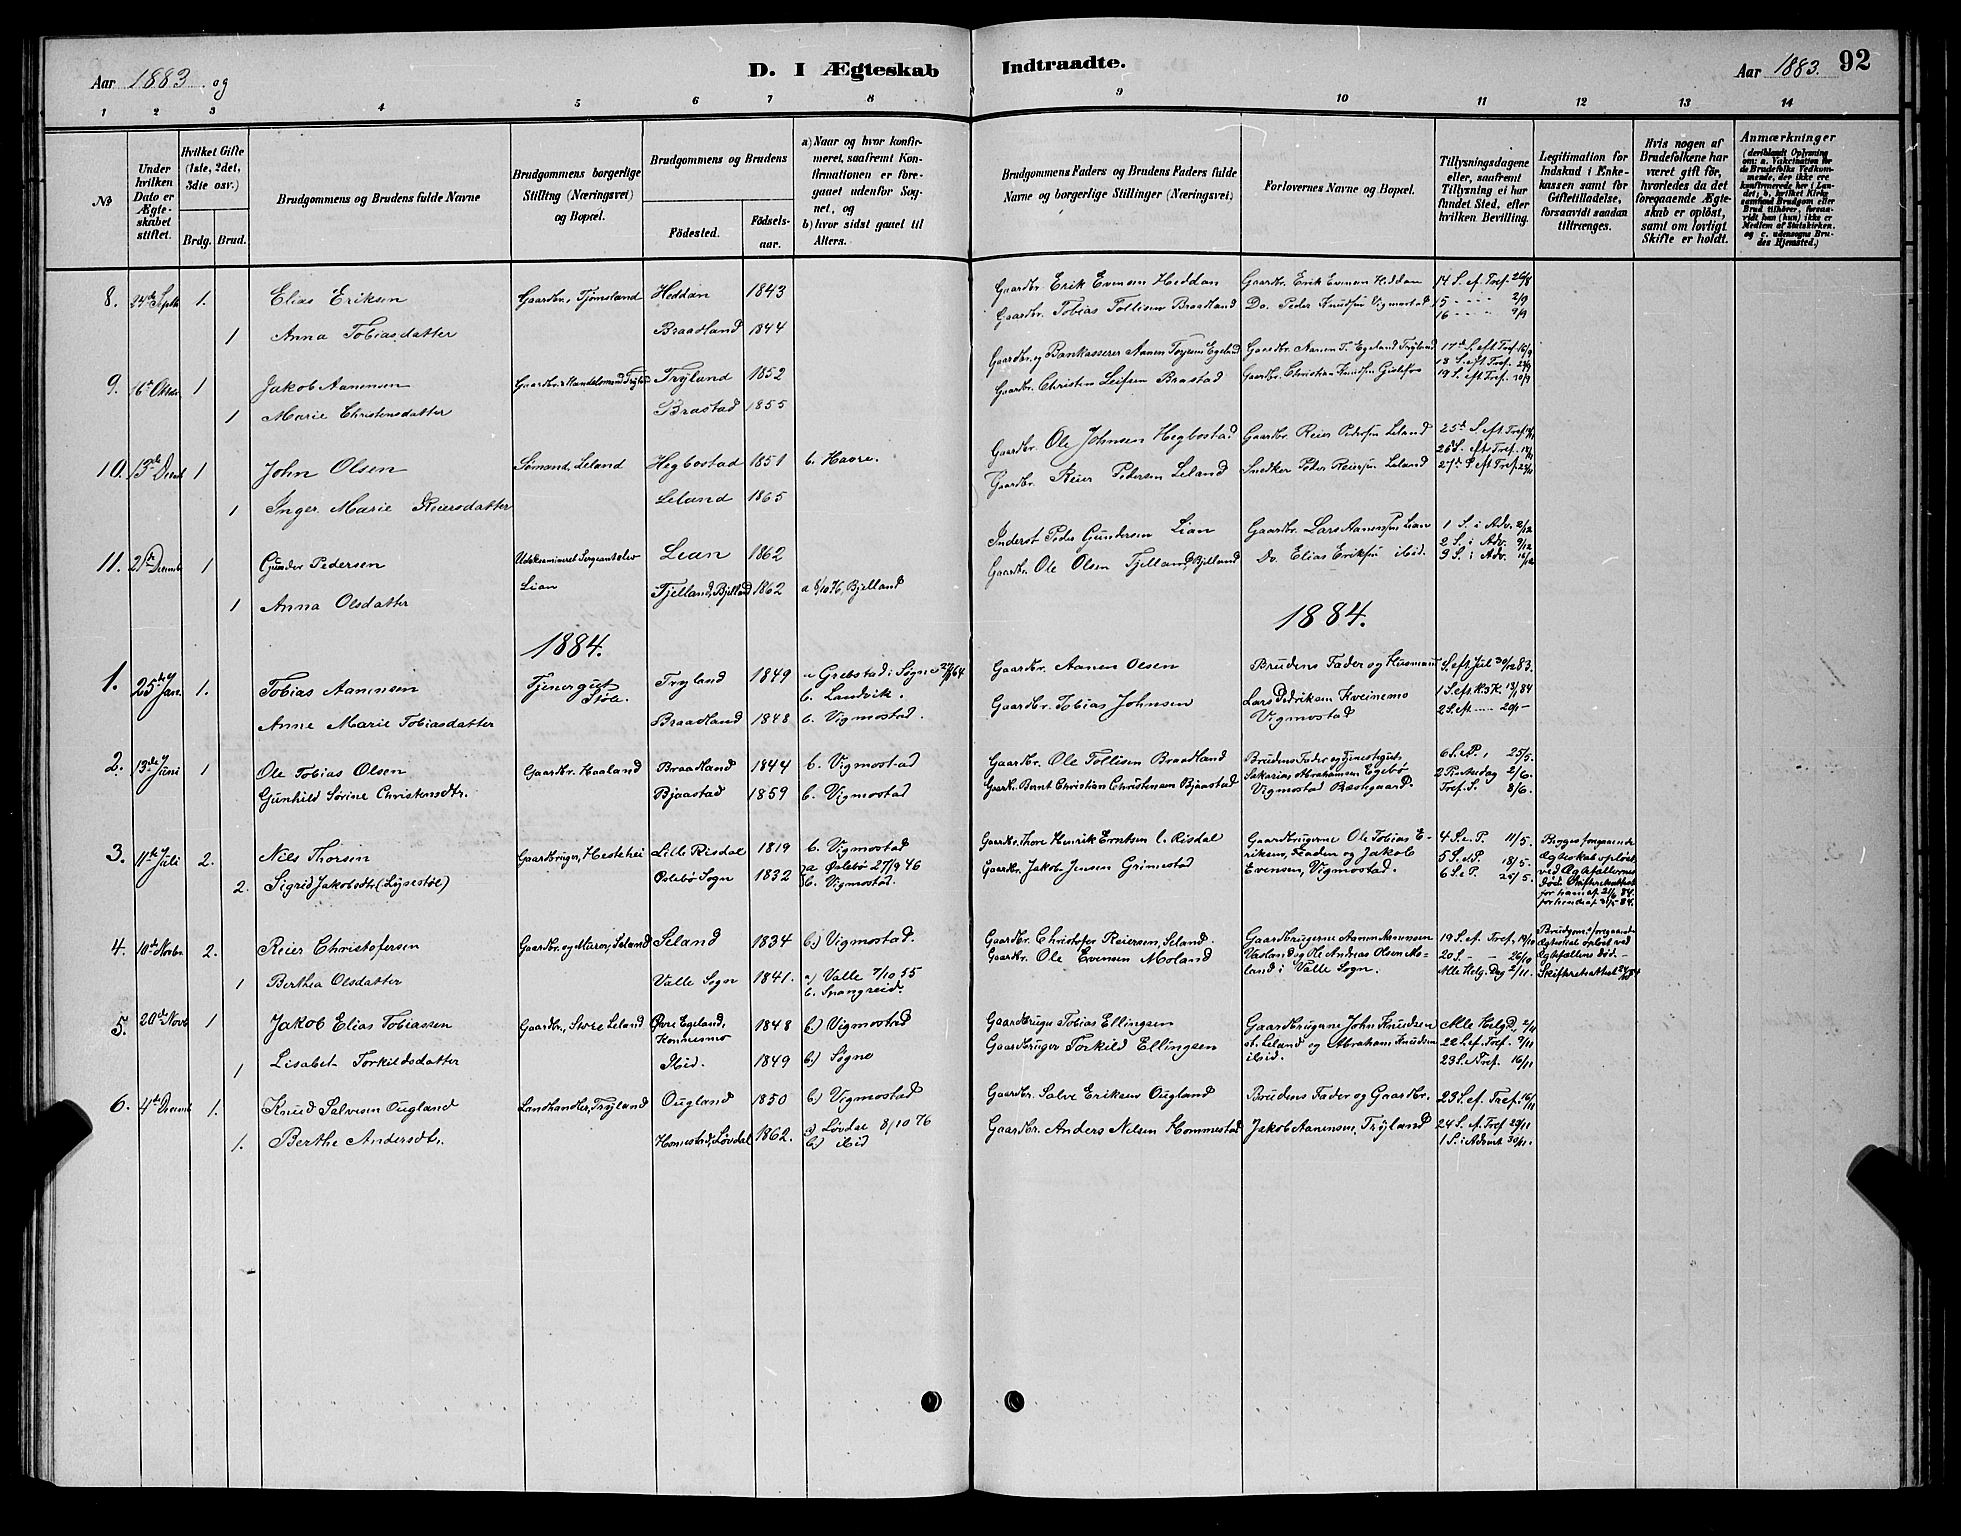 Aar 1883 og
D. I Ægteskab
Indtraadte.
Aar 1883.
92
1 2 3 4 5 6 7 8 9 10 11 12 13 14
No
Under hvilken Dato er Ægteskabet stiftet.
Hvilket Gifte (1ste, 2det, 3die osv.)
Brdg. Brud.
Brudgommens og Brudens fulde Navne
Brudgommens borgerlige Stilling (Næringsvei) og Bopæl.
Brudgommens og Brudens
Födested.
Födselsaar.
a) Naar og hvor konfirmeret, saafremt Konfirmationen er foregaaet udenfor Sognet, og
b) hvor sidst gaaet til Alters.
Brudgommens Faders og Brudens Faders fulde Navne og borgerlige Stillinger (Næringsvei)
Forlovernes Navne og Bopæl.
Tillysningsdagene eller, saafremt Tillysning ei har fundet Sted, efter hvilken Bevilling.
Legitimation for Indskud i Enkekassen samt for Giftetilladelse, forsaavidt saadan tiltrænges.
Hvis nogen af Brudefolkene har været gift för, hvorledes da det foregaaende Ægteskab er oplöst, samt om lovligt Skifte er holdt.
Anmærkninger
8. 24de Septb 1. Elias Eriksen Gaardbr., Tjömsland Heddan 1843 Gaardbr. Erik Evensen Heddan Gaardbr. Erik Evensen Heddan 14 S. ef. Tref. 26/8
1 Anna Tobiasdatter Braadland 1844 Gaardbr. Tobias Tollisen Braadland Do. Peder Knudsen Vigmostad 15 2/9
16 9/9
9. 1 Jakob Aanensen Tryland 1852 Gaardbr. og Bankkasserer Aanen Egeland Gaardbr. Aanen T. Egeland Tryland 17de S. eft Tref. 16/9
18 S. eft Tref. 23/9
1 Marie Christensdatter Brastad 1855 Gaardbr. Christen Leifsen Brastad Gaardbr. Christian Knudsen 19 S. eft Tref. 30/9
10. 13de 1 John Olsen Sömand, Leland Hegbostad 1851 b. Havre. Gaardbr. Ole Johnsen Hegbostad Gaardbr. Reier Pedersen Leland 25de S. eft Tref.
26de S. eft Tref.
1 Inger Marie Reiersdatter Leland 1865 Gaardbr. Reier Pedersen Leland Snedker Peder Reiersen Leland 27de S eft Tref.
11. 21de 1 Gunder Pedersen Lian Lian 1862 Inderst Peder Gundersen Lian Gaardbr. Lars Aanensen Lian 1 S. i Adv. 2/12
2 S. i Adv. 9/12
1 Anna Olsdatter Fjelland, Bjelland 1862 a 8/10 76, Bjelland Gaardbr. Ole Olsen Fjelland, Bjelland Do. Elias Eriksen ibid. 3 S. i Adv. 16/12
1884.
1884.
1. 25de Jan. 1. Tobias Aanensen Tjenergut Stöle. Tryland 1849 b. Landvik. Gaardbr. Aanen Olsen Brudens Fader og Husmand S. eft Jul 30/12 83.
Anne Marie Tobiasdatter Braadland 1848 b. Vigmostad. Gaardbr. Tobias Johnsen Lars Kveinemo Vigmostad 1 S. eft. H3K. 13/1 84
2 S. eft. 20/1
2. 13de Juni 1 Ole Tobias Olsen Gaardbr. Haaland Braadland 1844 b. Vigmostad Gaardbr. Ole Tollisen Braadland Brudens Fader og Tjenestegut 6 S. e P., 25/5.
Gunhild Sörine Christensdtr. Bjaastad 1859 b. Vigmostad Gaardbr. Bernt Christian Christensen Bjaastad Sakarias Abrahamsen Egebö Vigmostad Præstegaard. 2 Pintsedag 2/6.
Tref. S. 8/6.
3. 11te Juli 2. Niels Thorsen Gaardbruger, Hestehei Lille Risdal 1819 b. Vigmostad Gaardbr. Thore Henrik Erntsen l. Risdal Gaardbrugerne Ole Tobias Eriksen, Haaden og Jakob Evensen, Vigmostad. 4 S. e. P. 11/5.
5 S. e P. 18/5.
2. Sigrid Jakobsdtr (Lysestöl) Öslebö Sogn 1832 a Öslebö 27/9 46 b. Vigmostad. Gaardbr. Jakob Jensen Grimestad 6 S. e P. 25/5.
Begges foregaaende Ægteskab oplöst ved Ægtefællernes Död. Skifteattest for ham af 21/6 84. for hende af 31/5 84.
4. 10de Novbr. 2. Reier Christofersen Gaardbr. og Murer, Seland Seland 1834 b.) Vigmostad. Gaardbr. Christofer Reiersen, Seland. Gaardbrugerne Aanen Aanensen Vasland og Ole Andreas Olsen Moland i Valle Sogn. 19 S. ef. Tref. 19/10
20 S. - - 26/10
1 Berthea Olsdatter Valle Sogn 1841. a) Valle 7/10 55 b. Spangreid. Gaardbr. Ole Evensen Moland Alle Helg. Dag 2/11.
Brudgom. foregaaende Ægteskab oplöst ved Ægtefællens död. - Skifteattest
5. 20de Novb 1 Jakob Elias Tobiassen Gaardbr., Store Leland Övre Egeland, Konnesmo 1848 b) Vigmostad Gaardbruger Tobias Ellingsen Gaardbrugerne John Knudsen st. Leland og Abraham Knudsen ibid. Alle Helg D. 2/11
22 S. ef. Tref. 9/11
1 Lisabet Torkildsdatter Ibid. 1849 b) Sögne Gaardbruger Torkild Ellingsen 23 S. e Tref. 16/11
6. 4de 1. Knud Salvesen Ougland Landhandler, Tryland Ougland 1850 b) Vigmostad Gaardbr. Salve Eriksen Ougland Brudens Fader og Gaardbr. 23 S. ef. Tref. 16/11
1. Berthe Andersdtr. Homestad, Lövdal 1862. a) Lövdal 8/10 76 b) ibid Gaardbr. Anders Nilsen Hommestad Jakob Aanensen, Tryland 24 S. ef. Tref 23/11
1 S. i Advent 30/11.